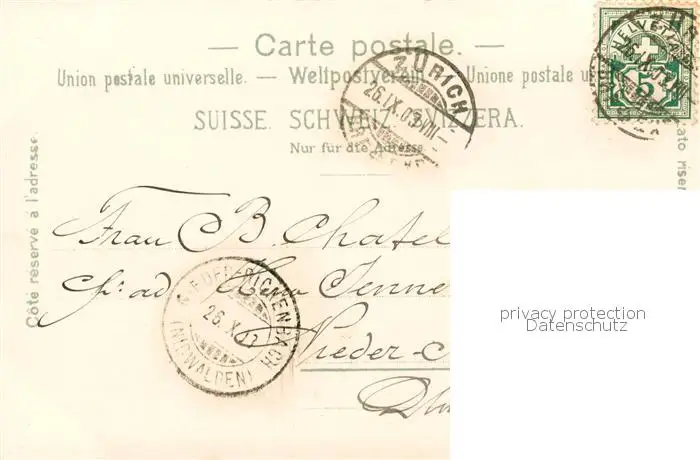 — Carte postale. —
Union postale universelle. — Weltpostverein. — Unione postale un
SUISSE. SCHWEIZ. SVIZZERA.
Nur für die Adresse.
Côté réservé à l'adresse.
ato riser
HELVETIA
5
ZÜRICH
26.IX.03.VIII—
Frau B. Chatel
p. ad. Jenne
Nieder-
NIEDERRICKENBACH
26.X
(NIDWALDEN)
privacy protection
Datenschutz